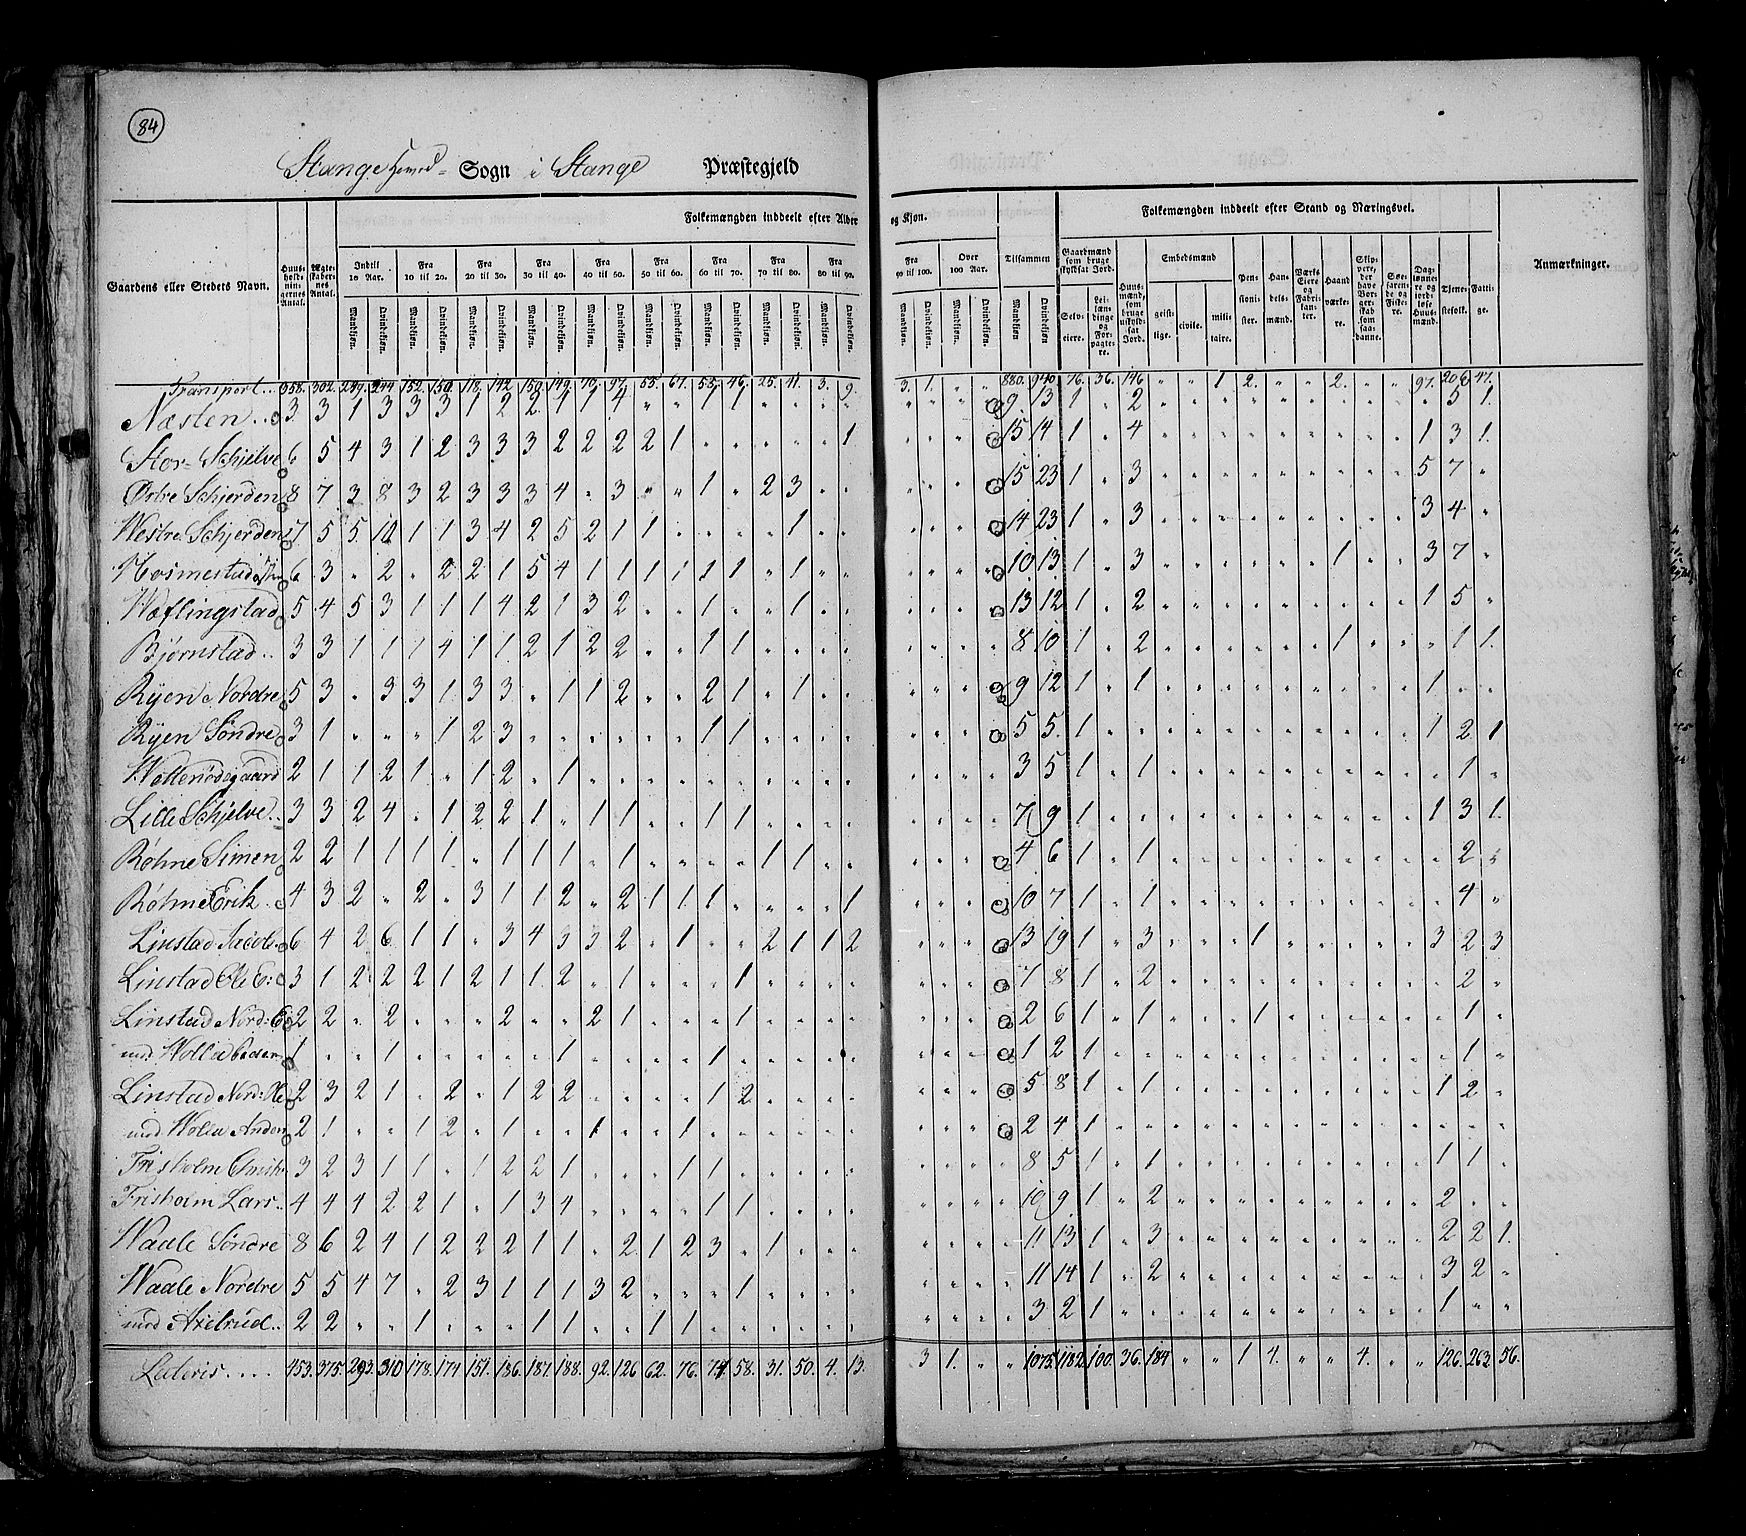 84
Stange Hoved- Sogn i Stange Præstegjeld
Folkemængden inddeelt efter Alder og Kjøn.
Folkemængden inddeelt efter Stand og Næringsvei.
Gaardens eller Stedets Navn.
Huusholdningernes Antal.
Ægteskabernes Antal.
Indtil 10 Aar.
Fra 10 til 20.
Fra 20 til 30.
Fra 30 til 40.
Fra 40 til 50.
Fra 50 til 60.
Fra 60 til 70.
Fra 70 til 80.
Fra 80 til 90.
Fra 90 til 100.
Over 100 Aar.
Mandkjøn. Qvindekjøn.
Tilsammen
Gaardmænd som bruge skyldsat Jord.
Selveiere.
Leilændinge og Forpagtere.
Huusmænd, som bruge uskyldsat Jord.
Embedsmænd
geistlige. civile. militaire.
Pensionister.
Handelsmænd.
Værks Eiere og Fabrikanter.
Haandværkere.
Skippere, der have Borgerskab som saadanne.
Søefarende og Fiskere.
Daglønnere og jordløse Huusmænd.
Tjenestefolk.
Fattige.
Anmærkninger.
Transport.. 358. 302. 249. 244 152. 150. 118. 142. 150. 149. 70. 97. 55. 67. 58. 46. 25. 41. 3. 9. 3. 1. " " 880. 940 76. 36. 146 " " 1 2. " " 2. " " 97. 206 47.
Næsten.. 3 3 1 3 3 3 1 2 2 1 1 4 " " 1 1 " " " " " " " " 9 13 1 " 2 " " " " " " " " " " 5 1.
Stor-Schjelve 6 5 4 3 1 2 3 3 3 2 2 2 2 1 " " " " " 1 " " " " 15 14 1 " 4 " " " " " " " " " 1 3 1.
Østre Schjerden 8 7 3 8 3 2 3 3 3 4 " 3 " " 1 " 2 3 " " " " " " 15 23 1 " 3 " " " " " " " " " 5 7 "
Westre Schjerden 7 5 5 10 1 1 3 4 2 5 2 1 1 " " " " 1 " " " " " " 14 23 1 " 3 " " " " " " " " " 3 4 "
Hosmestad 6 3 " 2 " 2 2 1 5 4 1 1 1 1 1 1 " 1 " " " " " " 10 13 1 " 3 " " " " " " 1 " " 3 7 "
Wæflingstad 5 4 5 3 1 1 1 4 2 1 3 2 " " 1 " " 1 " " " " " " 13 12 1 " 2 " " " " " " " " " 1 5 "
Bjørnstad.. 3 3 1 1 1 4 1 1 2 1 2 2 " " 1 1 " " " " " " " " 8 10 1 " 2 " " " " " " 1 " " " 1 1.
Ryen Nordre 5 3 " 3 3 1 3 3 " 1 1 2 " " 2 1 " 1 " " " " " " 9 12 1 " 1 " " " " " " " " " 1 " "
Ryen Søndre 3 1 " " " 1 2 3 " " " " " " 1 1 " " " " " " " " 5 5. 1 " " " " " " " " " " " 1 2 1
Wollenødegaard 2 1 1 2 1 " 1 2 " 1 " " " " " " " " " " " " " " 3 5 1 " 1 " " " " " " " " " " 1 "
Lille Schjelve.. 3 3 2 4 " 1 2 2 1 " 1 1 " " 1 1 " " " " " " " " 7 9 1 " " " " " " " " " " " 1 3 1.
Røhne Simen 2 2 1 1 1 1 " 1 1 1 " 1 " " " " 1 1 " " " " " " 4 6 1 " 1 " " " " " " " " " " 2 "
Røhne Erik.. 4 3 2 " 2 " 3 1 1 2 " 2 1 1 1 " " " " 1 " " " " 10 7 1 " 1 " " " " " " " " " " 4 "
Linstad Jacob. 6 4 2 6 1 1 " 3 4 3 3 2 " 1 " " 2 1 1 2 " " " " 13 19 1 " 3 " " " 1 " " " " " 3 2 3
Linstad Ole E: 3 1 2 2 2 1 2 1 1 2 " 1 " " " 1 " " " " " " " " 7 8 1 " 2 " " " " " " " " " " 2 "
Linstad Nord: 2 2 " 2 " " " 2 " " 2 1 " " " 1 " " " " " " " " 2 6 1 " 1 " " " 1 " " " " " " 1 "
med Wolla Peder 1 " " 1 " " " " " 1 " " " " 1 " " " " " " " " " 1 2 1 " " " " " " " " " " " " 1 "
Linstad Nord: Ole 2 3 2 1 " 2 " 1 2 2 " " " " 1 2 " " " " " " " " 5 8 1 " 1 " " " " " " " " " 1 2 "
med Wolla Anders 2 1 " " 1 2 " 1 " " 1 " " 1 " " " " " " " " " " 2 4 1 " " " " " " " " " " " " " "
Frisholm Christ. 3 2 3 1 1 " 1 2 2 1 " " " " 1 1 " " " " " " " " 8 5 1 " 1 " " " " " " " " " 1 1 "
Frisholm Lars.. 4 4 4 2 2 1 " 1 3 4 " " " " 1 1 " " " " " " " " 10 9 1 " 2 " " " " " " " " " 2 " "
Waale Søndre 8 6 2 4 1 2 2 2 1 1 " 2 1 2 3 " 1 " " " " " " " 11 13 1 " 3 " " " " " " " " " 2 2 1.
Waale Nordre 5 5 4 7 " 2 3 1 1 1 3 2 " " " 1 " " " " " " " " 11 14 1 " 2 " " " " " " " " " 3 2 "
med Axelrud.. 2 2 " " 1 " " " 1 1 " " 1 1 " " " " " " " " " " 3 2 1 " " " " " " " " " " " 1 " "
Lateris.... 453. 375. 293. 310 178. 174 151. 186. 187. 188. 92. 126 62. 76. 74. 58. 31. 50. 4. 13. 3 1. " " 1075 1182 100. 36. 184 " " 1 4. " " 4. " " 126. 263. 56.